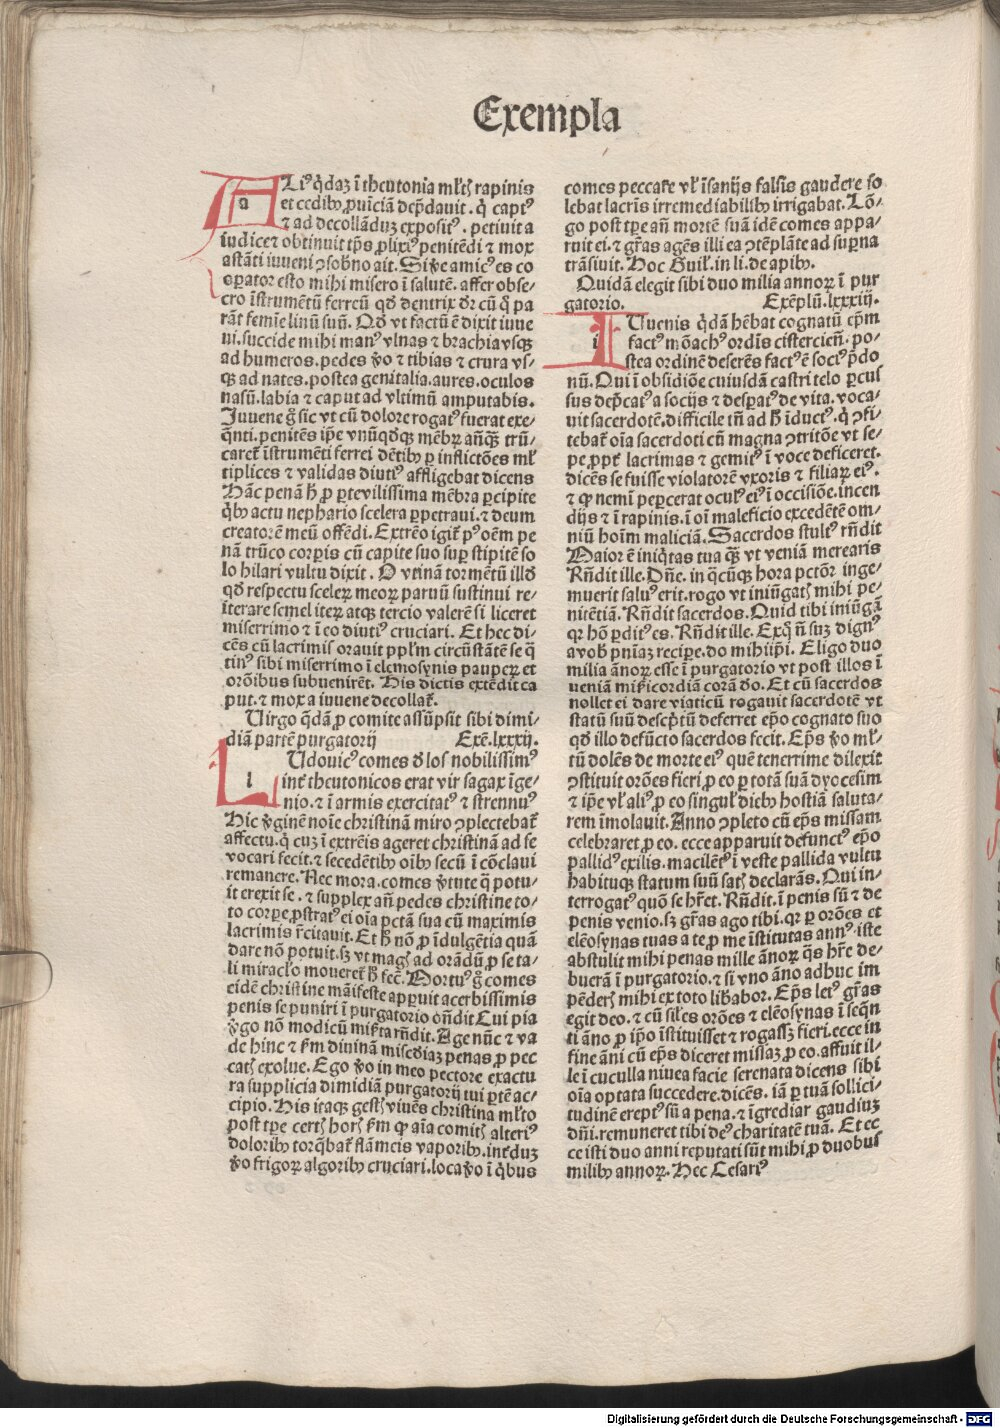 Exempla
ALiꝰ q̇daꝫ ĩ theutonia ml̓tꝭ rapinis
et cedibꝰ ꝓuĩciã dep̃dauit. q̇ captꝰ
⁊ ad decollãduꝫ expositꝰ. petiuit a
iudice ⁊ obtinuit tp̃s ꝓlixiꝰ penitẽdi ⁊ mox
astãti iuueni ꝯsobno ait. Si v̓e amicꝰ es co
oꝑator esto mihi misero ĩ salutẽ. affer obse-
cro ĩstrumẽtũ ferreũ qd̓ dentrix dr̃ cũ q̊ pa
rãt femĩe linũ suũ. Qd̓ vt factũ ẽ dixit iuue
ni. succide mihi manꝰ vlnas ⁊ brachia vsqꝫ
ad humeros. pedes v̓o ⁊ tibias ⁊ crura vs-
qꝫ ad nates. postea genitalia. aures. oculos
nasũ. labia ⁊ caput ad vltimũ amputabis.
Iuuene g̊ sic vt cũ dolore rogatꝰ fuerat exe-
q̃nti. penitẽs ip̃e vnũqd̓qꝫ mẽbꝝ añqꝫ trũ-
caret̃ ĩstrumẽti ferrei dẽtibꝰ ꝑ inflictões ml̓
tiplices ⁊ validas diutiꝰ affligebat dicens
Hãc penã h̓ ꝓ ꝑte vilissima mẽbra ꝑcipite
q̇bꝰ actu nephario scelera ꝑpetraui. ⁊ deum
creatorẽ meũ offẽdi. Extrẽo igit̃ pꝰ oẽm pe
nã trũco corꝑis cũ capite suo suꝑ stipitẽ so
lo hilari vultu dixit. O vtinã tormẽtũ illd̓
qd̓ respectu sceleꝝ meoꝝ paruũ sustinui re-
iterare semel iteꝝ atqꝫ tercio valerẽ si liceret
miserrimo ⁊ ĩ eo diutiꝰ cruciari. Et hec di-
cẽs cũ lacrimis orauit ppl̓m circũstãtẽ se q̊
tinꝰ sibi miserrimo ĩ elemosynis pauꝑeꝝ et
orõibus subuenirẽt. His dictis extẽdit ca
put. ⁊ mox a iuuene decollat̃.
Uirgo q̃dã ꝓ comite assũpsit sibi dimi-
diã partẽ purgatorij Exẽ. lxxxij.
LUdouicꝰ comes d̓ los nobilissimꝰ
int̃ theutonicos erat vir sagax ĩge-
nio. ⁊ ĩ armis exercitatꝰ ⁊ strennuꝰ
Hic v̓ginẽ noĩe christinã miro ꝯplectebat̃
affectu. q̇ cuꝫ ĩ extrẽis ageret christinã ad se
vocari fecit. ⁊ secedẽtibꝰ oĩbꝰ secũ ĩ cõclaui
remanere. Nec mora. comes v̓tute q̃ potu-
it erexit se. ⁊ supplex añ pedes christine to-
to corꝑe ꝓstratꝰ ei oĩa pctã sua cũ maximis
lacrimis r̃citauit. Et h̓ nõ ꝓ ĩdulgẽtia quã
dare nõ potuit. sꝫ vt magꝭ ad orãdũ ꝓ se ta-
li miracl̓o moueret̃ h̓ fec̃. Mortuꝰ g̊ comes
eidẽ christine mãifeste apꝑuit acerbissimis
penis se puniri ĩ purgatorio oñdit Cui pia
v̓go nõ modicũ mir̃ta rñdit. Age nũc ⁊ va
de hinc ⁊ ẜm diuinã misc̃diaꝫ penas ꝓ pec
catꝭ exolue. Ego v̓o in meo pectore exactu
ra supplicia dimidiã purgatorij tui ꝑtẽ ac-
cipio. His itaqꝫ gestꝭ viuẽs christina ml̓to
post tꝑe certꝭ horꝭ ẜm qꝙ aĩa comitꝭ alteriꝰ
doloribꝰ torq̃bat̃ flãmeis vaporibꝰ. int̃duꝫ
v̓o frigoꝝ algoribꝰ cruciari. loca v̓o ĩ q̇bus
comes peccare vl̓ ĩsanijs falsis gaudere so
lebat lacrĩs irremediabilibꝰ irrigabat. Lõ-
go post tꝑe añ mortẽ suã idẽ comes appa-
ruit ei. ⁊ gr̃as agẽs illi ea ꝯtẽplãte ad suꝑna
trãsiuit. Hoc Guil̓. in li. de apibꝰ.
Quidã elegit sibi duo milia annoꝝ ĩ pur
gatorio. Exẽplũ. lxxxiij.
IUuenis q̇dã hẽbat cognatũ ep̃m
factꝰ mõachꝰ ordĩs cistercieñ. po-
stea ordinẽ deserẽs factꝰ ẽ sociꝰ p̃do
nũ. Qui ĩ obsidiõe cuiusdã castri telo ꝑcus
sus dep̃catꝰ a socijs ⁊ desꝑatꝰ de vita. voca-
uit sacerdotẽ. difficile tñ ad h̓ ĩductꝰ. q̇ ꝯfi-
tebat̃ oĩa sacerdoti cũ magna ꝯtritõe vt se-
pe. ꝓpt̃ lacrimas ⁊ gemitꝰ ĩ voce deficeret.
dicẽs se fuisse violatorẽ vxoris ⁊ filiaꝝ eiꝰ.
⁊ qꝙ nemĩ peꝑcerat oculꝰ eiꝰ ĩ occisiõe. incen
dijs ⁊ ĩ rapinis. ĩ oĩ maleficio excedẽtẽ om-
niũ hoĩm maliciã. Sacerdos stultꝰ rñdit
Maior ẽ iniq̇tas tua qꝫ vt veniã merearis
Rñdit ille. Dñe. in q̇cũqꝫ hora pctõr inge-
muerit saluꝰ erit. rogo vt iniũgatꝭ mihi pe-
nitẽtiã. Rñdit sacerdos. Quid tibi iniũgã
qꝛ hõ ꝑditꝰ es. Rñdit ille. Exq̊ ñ suꝫ dignꝰ
a vob̓ pniaꝫ recipe. do mihiip̃i. Eligo duo
milia ãnoꝝ esse ĩ purgatorio vt post illos ĩ
ueniã mir̃icordiã corã d̓o. Et cũ sacerdos
nollet ei dare viaticũ rogauit sacerdotẽ vt
statũ suũ descp̃tũ deferret ep̃o cognato suo
qd̓ illo defũcto sacerdos fecit. Ep̃s v̓o ml̓-
tũ dolẽs de morte eiꝰ quẽ tenerrime dilexit
ꝯstituit orões fieri ꝓ eo ꝑ totã suã dyocesim
⁊ ip̃e vl̓ aliꝰ ꝓ eo singul̓ diebꝰ hostiã saluta-
rem ĩmolauit. Anno ꝯpleto cũ ep̃s missam
celebraret ꝓ eo. ecce apparuit defunctꝰ ep̃o
pallidꝰ exilis. macilẽtꝰ ĩ veste pallida vultu
habituqꝫ statum suũ satꝭ declarãs. Qui in-
terrogatꝰ quõ se hr̃et. Rñdit. ĩ penis sũ ⁊ de
penis venio. sꝫ gr̃as ago tibi. qꝛ ꝑ orões et
elẽosynas tuas a te ꝓ me ĩstitutas annꝰ iste
abstulit mihi penas mille ãnoꝝ q̃s hr̃e de-
buerã ĩ purgatorio. ⁊ si vno ãno adhuc im
pẽderꝭ mihi ex toto lib̓abor. Ep̃s letꝰ gr̃as
egit deo. ⁊ cũ sil̓es orões ⁊ elẽosynas ĩ seq̃n
ti ãno ꝓ ip̃o ĩstituisset ⁊ rogassꝫ fieri. ecce in
fine ãni cũ ep̃s diceret missaꝫ ꝓ eo. affuit il-
le ĩ cuculla niuea facie serenata dicens sibi
oĩa optata succedere. dicẽs. iã ꝑ tuã sollici-
tudinẽ ereptꝰ sũ a pena. ⁊ ĩgrediar gaudiuꝫ
dñi. remuneret tibi deꝰ charitatẽ tuã. Et ec
ce isti duo anni reputati sũt mihi ꝓ duobus
milibꝰ annoꝝ. Hec Cesariꝰ
Digitalisierung gefördert durch die Deutsche Forschungsgemeinschaft - DFG